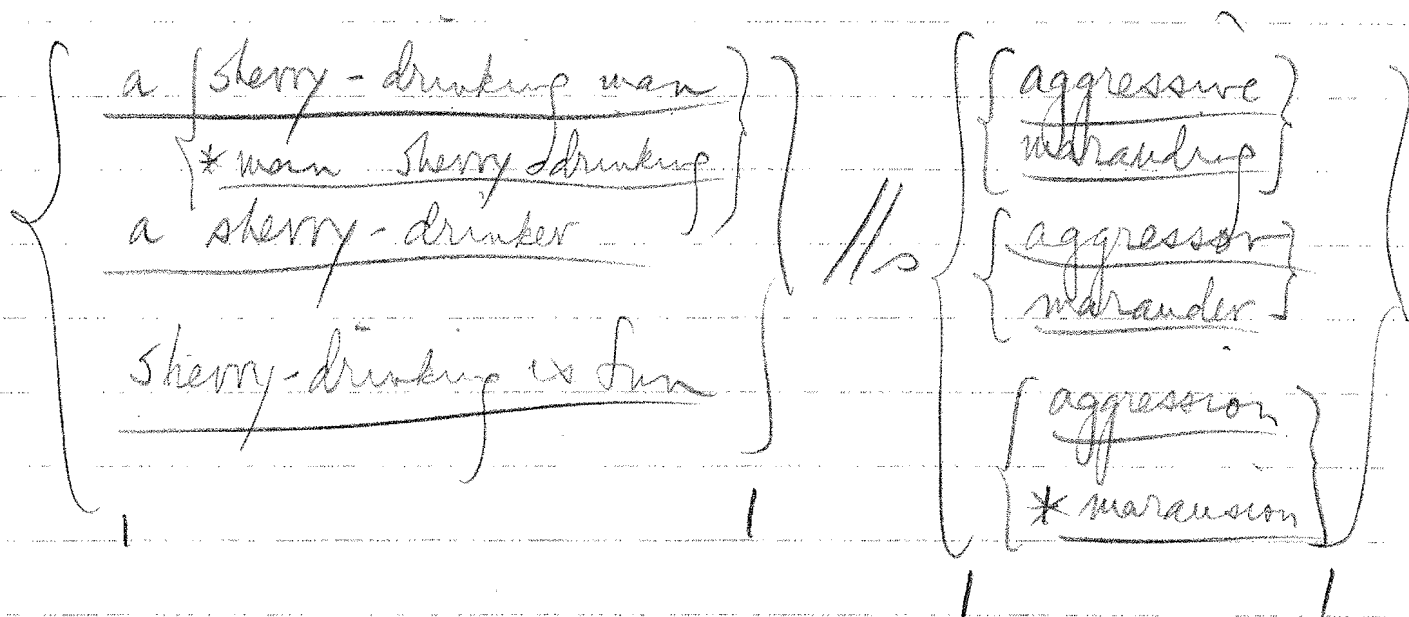 a sherry-drinking man
* man sherry drinking
a sherry-drinker
sherry-drinking is fun
//s
aggressive
marauding
aggressor
marauder
aggression
* marausion